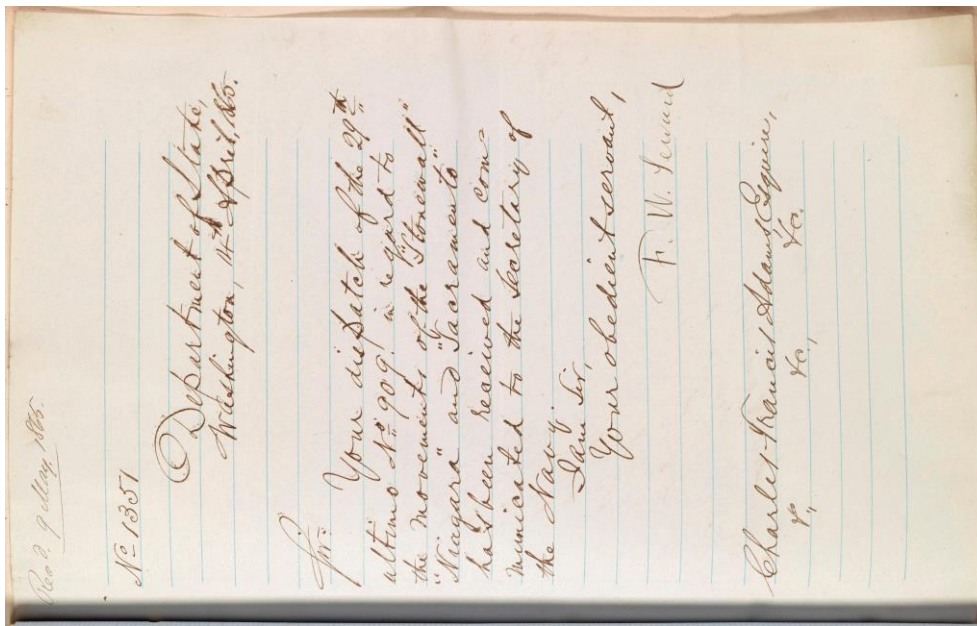 Rec'd. 9 May, 1865.
No 1351
Department of State,
Washington, 14th April, 1865.
Sir:
Your dispatch of the 29th
ultimo No. 909, in regard to
the movements of the "Stonewall"
"Niagara" and "Sacramento"
has been received and com-
municated to the Secretary of
the Navy.
I am Sir,
Your obedient servant,
F. W. Seward
Charles Francis Adams, Esquire,
&c., &c., &c.